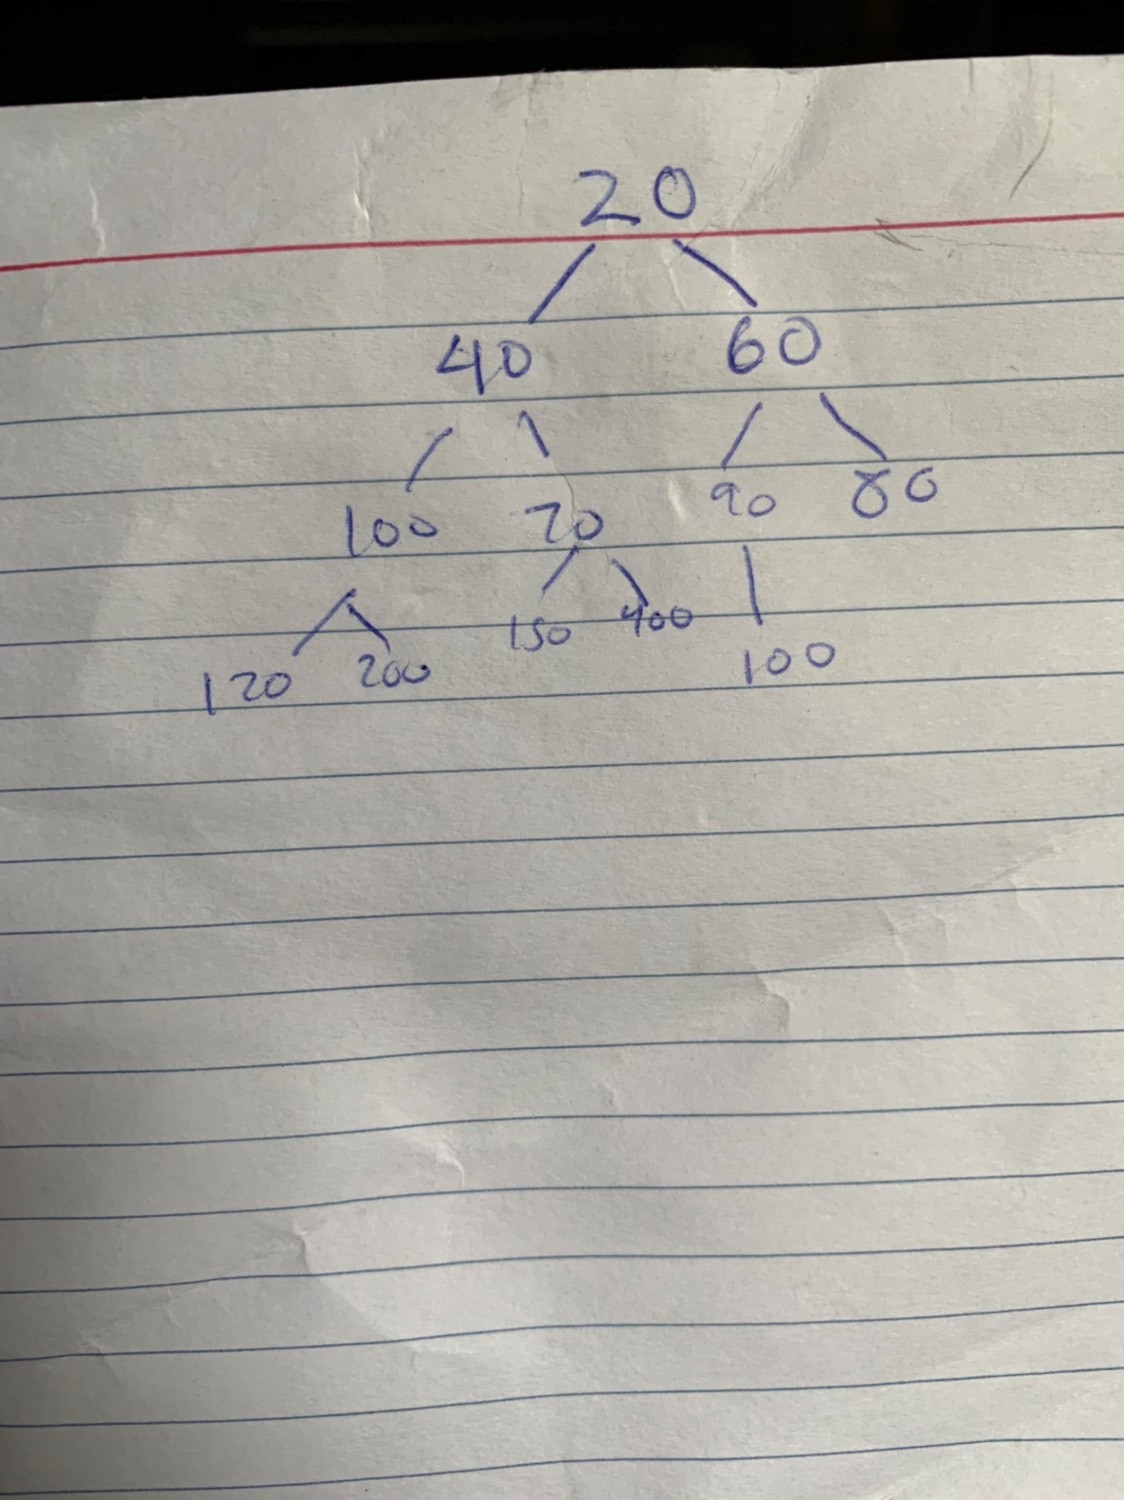 20
40 60
100 70 90 80
120 200 150 400 100